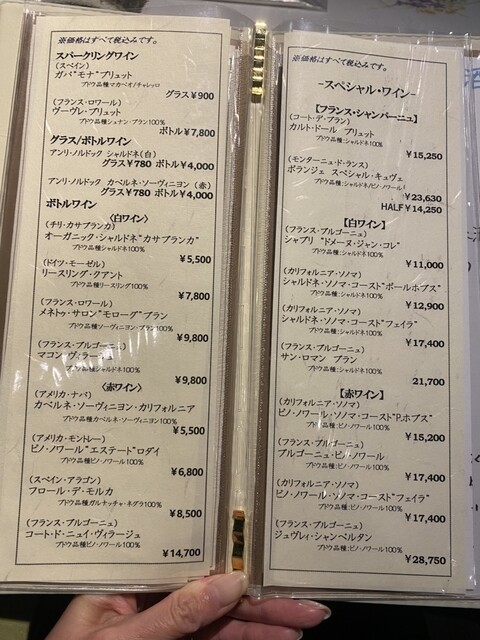 ※価格はすべて税込みです。
スパークリングワイン
(スペイン)
カバ"モナ"ブリュット
ブドウ品種マカベオ/チャレッロ
グラス¥900
(フランス・ロワール)
ヴーヴレ・ブリュット
ブドウ品種シュナン・ブラン100%
ボトル¥7,800
グラス/ボトルワイン
アンリ・ノルドック シャルドネ(白)
グラス¥780 ボトル¥4,000
アンリ・ノルドック カベルネ・ソーヴィニヨン(赤)
グラス¥780 ボトル¥4,000
ボトルワイン
〈白ワイン〉
(チリ・カサブランカ)
オーガニック・シャルドネ"カサブランカ"
ブドウ品種シャルドネ100%
¥5,500
(ドイツ・モーゼル)
リースリング・クアント
ブドウ品種リースリング100%
¥7,800
(フランス・ロワール)
メネトゥ・サロン"モローグ"ブラン
ブドウ品種ソーヴィニヨン・ブラン100%
¥9,800
(フランス・ブルゴーニュ)
マコン・ヴ
ブドウ品種シャルドネ100%
¥9,800
〈赤ワイン〉
(アメリカ・ナパ)
カベルネ・ソーヴィニヨン・カリフォルニア
ブドウ品種カベルネ・ソーヴィニヨン100%
¥5,500
(アメリカ・モントレー)
ピノ・ノワール"エステート"ロダイ
ブドウ品種ピノ・ノワール100%
¥6,800
(スペイン・アラゴン)
フロール・デ・モルカ
ブドウ品種ガルナッチャ・ネグラ100%
¥8,500
(フランス・ブルゴーニュ)
コート・ド・ニュイ・ヴィラージュ
ブドウ品種ピノ・ノワール100%
¥14,700
※価格はすべて税込みです。
-スペシャル・ワイン-
【フランス・シャンパーニュ】
(コート・デ・ブラン)
カルト・ドール ブリュット
ブドウ品種シャルドネ100%
¥15,250
(モンターニュ・ド・ランス)
ボランジェ スペシャル・キュヴェ
ブドウ品種:シャルドネ/ピノ・ノワール/
¥23,630
HALF¥14,250
【白ワイン】
(フランス・ブルゴーニュ)
シャブリ "ドメーヌ・ジャン・コレ"
ブドウ品種:シャルドネ100%
¥11,000
(カリフォルニア・ソノマ)
シャルドネ・ソノマ・コースト"ポールホブス"
ブドウ品種:シャルドネ100%
¥12,900
(カリフォルニア・ソノマ)
シャルドネ・ソノマ・コースト"フェイラ"
ブドウ品種:シャルドネ100%
¥17,400
(フランス・ブルゴーニュ)
サン・ロマン ブラン
ブドウ品種:シャルドネ100%
21,700
【赤ワイン】
(カリフォルニア・ソノマ)
ピノ・ノワール・ソノマ・コースト"P.ホブス"
ブドウ品種:ピノ・ノワール100%
¥15,200
(フランス・ブルゴーニュ)
ブルゴーニュ・ピノ・ノワール
ブドウ品種:ピノ・ノワール100%
¥17,400
(カリフォルニア・ソノマ)
ピノ・ノワール・ソノマ・コースト"フェイラ"
ブドウ品種:ピノ・ノワール100%
¥17,400
(フランス・ブルゴーニュ)
ジュヴレィ・シャンベルタン
ブドウ品種:ピノ・ノワール100%
¥28,750